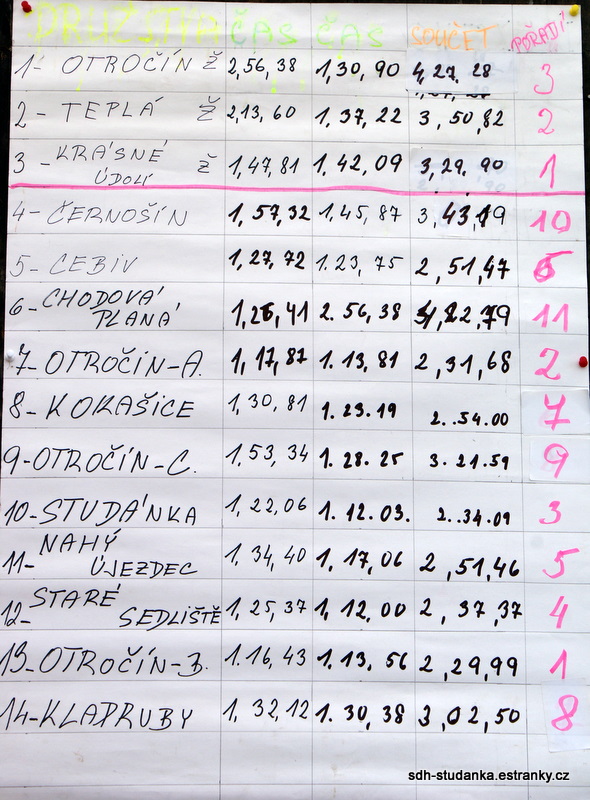 DRUŽSTVA ČAS ČAS SOUČET POŘADÍ
1- OTROČÍN Ž 2,56,38 1,30,90 4,27.28 3
2- TEPLÁ Ž 2,13,60 1.37,22 3,50,82 2
3- KRÁSNÉ ÚDOLÍ Ž 1,47,81 1.42,09 3,29.90 1
4- ČERNOŠÍN 1,57,32 1,45,87 3,43,19 10
5- CEBIV 1,27,72 1.23,75 2,51,47 6
6- CHODOVÁ PLANÁ 1,26,41 2.56,38 4,22,79 11
7- OTROČÍN-A. 1,17,87 1.13,81 2,31,68 2
8- KOKAŠICE 1,30,81 1.23.19 2..54.00 7
9-OTROČÍN-C. 1,53,34 1.28.25 3.21.59 9
10-STUDÁNKA 1,22,06 1.12.03. 2..34.09 3
11- NAHÝ ÚJEZDEC 1,34,40 1,17,06 2,51,46 5
12- STARÉ SEDLIŠTĚ 1,25,37 1,12,00 2,37,37 4
13-OTROČÍN-B. 1.16,43 1.13,56 2,29,99 1
14-KLADRUBY 1,32,12 1.30,38 3,02,50 8
sdh-studanka.estranky.cz